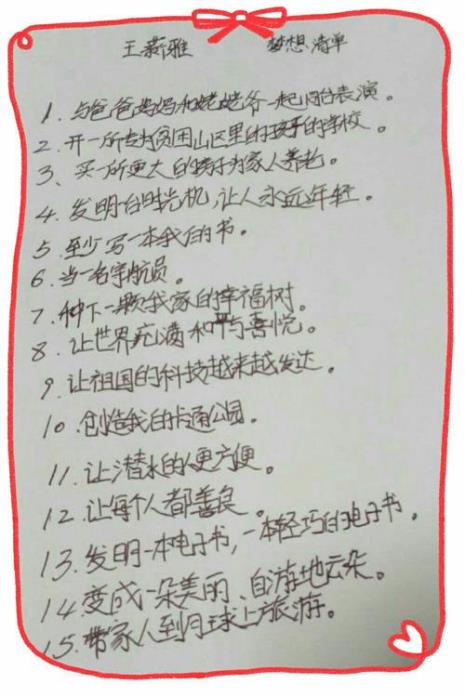 王薪雅 梦想清单
1. 与爸爸妈妈和姥姥爷一起同台表演。
2. 开一所专为贫困山区里的孩子的学校。
3、买一所更大的房子为家人养老。
4、发明台时光机,让人永远年轻。
5、至少写一本我的书。
6、当一名宇航员。
7、种下一颗我家的幸福树。
8、让世界充满和平与喜悦。
9、让祖国的科技越来越发达。
10、创造我的卡通公园。
11、让潜水的人更方便。
12、让每个人都善良。
13、发明一本电子书,一本轻巧的电子书。
14、变成一朵美丽、自游地云朵。
15、带家人到月球上旅游。